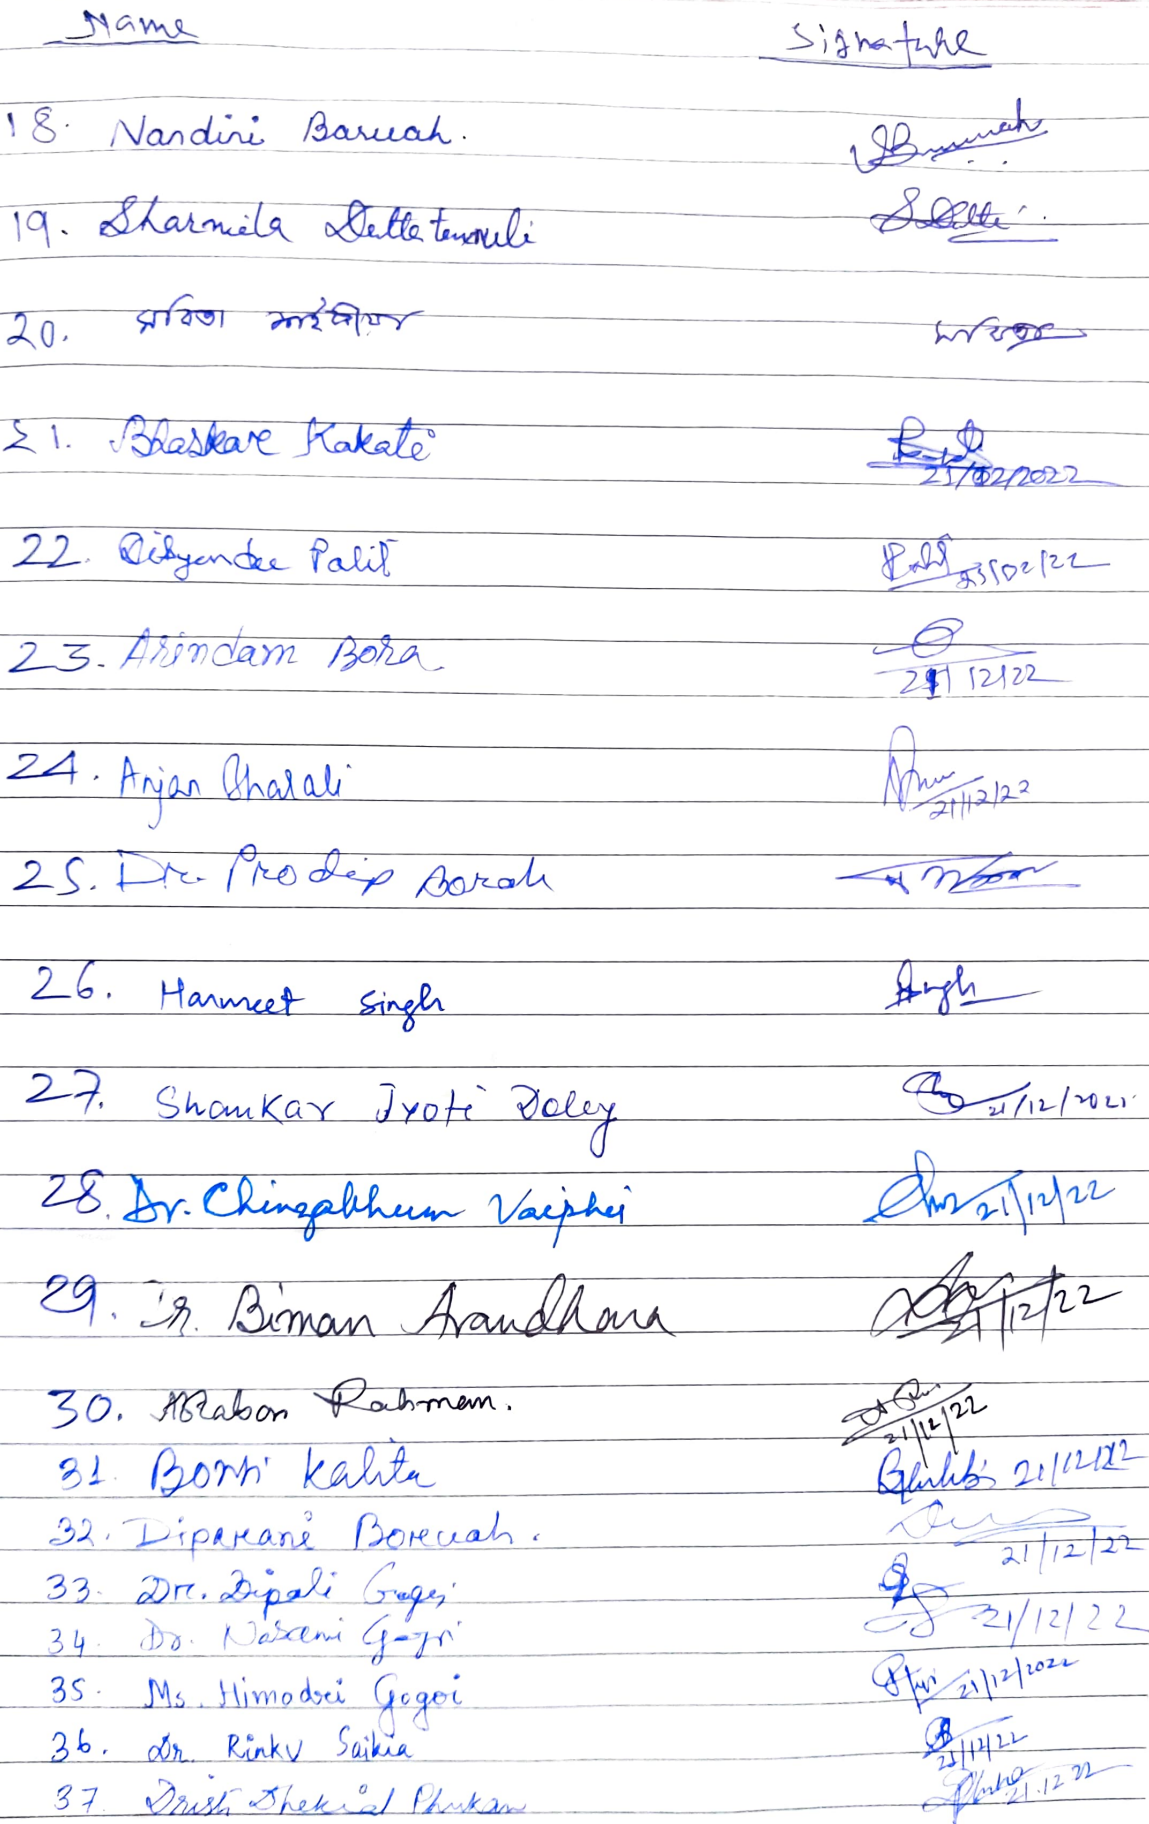 Name Signature
18. Nandini Baruah.
19. Sharmila Dutta
20. সবিতা
21. Bhaskar Kakati 25/02/2022
22. Palit Palit 23/02/22
23. Arindam Bora 21/12/22
24. Anjan Bharali 21/12/22
25. Dr. Prodip Borah
26. Harmeet Singh Singh
27. Shankar Jyoti Doley 21/12/2021
28. Dr. Vaiphei 21/12/22
29. Biman Arandhara 21/12/22
30. Rahman. 21/12/22
31. Kalita 21/12/22
32. Diparani Boruah. 21/12/22
33. Dr. Dipali Gogoi
34. Dr. Gogoi 21/12/22
35. Ms. Himadri Gogoi 21/12/2022
36. Dr. Rinku Saikia 21/12/22
37 Dristi Dhekial Phukan 21.12.22